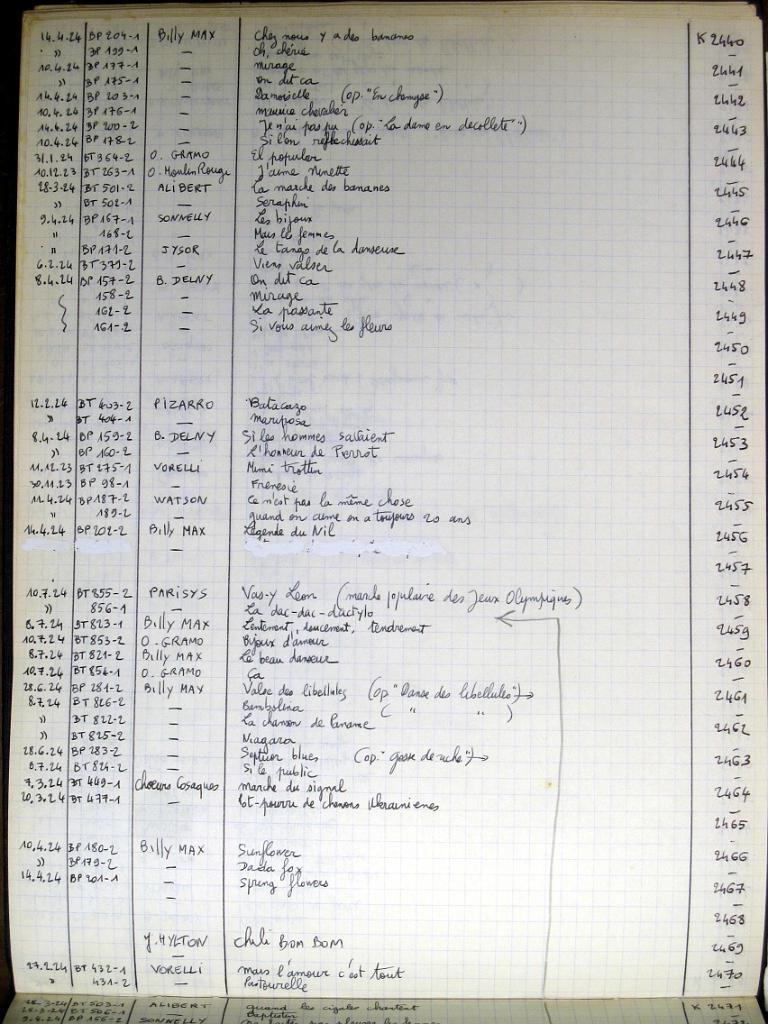 14.4.24 BP 204-1 Billy MAX Chez nous y a des bananes K 2440
" BP 199-1 — Oh, chérie —
10.4.24 BP 177-1 — mirage 2441
" BP 175-1 — on dit ca —
14.4.24 BP 203-1 — Damoiselle (op. "En chemyse") 2442
10.4.24 BP 176-1 — maurice chevalier —
14.4.24 BP 200-2 — Je n'ai pas pu (op. "La dame en decolleté") 2443
10.4.24 BP 178-2 — Si l'on reflechissait —
31.1.24 BT 364-2 O. GRAMO El popular 2444
10.12.23 BT 263-1 O. Moulin Rouge J'aime Ninette —
28-3-24 BT 501-2 ALIBERT La marche des bananes 2445
" BT 502-1 — Seraphin —
9.4.24 BP 167-1 SONNELLY Les bijoux 2446
" 168-2 — Mais les femmes —
" BP 171-2 JYSOR Le tango de la danseuse 2447
6.2.24 BT 371-2 — Viens valser —
8.4.24 BP 157-2 B. DELNY On dit ca 2448
158-2 — mirage —
162-2 — La passante 2449
161-2 — Si vous aimez les fleurs —
2450
—
2451
—
12.2.24 BT 403-2 PIZARRO Batacazo 2452
" BT 404-1 — mariposa —
8.4.24 BP 159-2 B. DELNY Si les hommes savaient 2453
" BP 160-2 — L'honneur de Pierrot —
11.12.23 BT 275-1 VORELLI Mimi trottin 2454
30.11.23 BP 98-1 — Frenesie —
11.4.24 BP 187-2 WATSON Ce n'est pas la même chose 2455
" 189-2 — quand on aime on a toujours 20 ans —
14.4.24 BP 202-2 Billy MAX Légende du Nil 2456
— —
2457
—
10.7.24 BT 855-2 PARISYS Vas-y Leon (marche populaire des Jeux Olympiques) 2458
" 856-1 — La dac-dac-dactylo —
8.7.24 BT 823-1 Billy MAX Lentement, doucement, tendrement 2459
10.7.24 BT 853-2 O. GRAMO Bijoux d'amour —
8.7.24 BT 821-2 Billy MAX Le beau danseur 2460
10.7.24 BT 854-1 O. GRAMO Ça —
28.6.24 BP 281-2 Billy MAX Valse des libellules (op. "Danse des libellules") → 2461
8.7.24 BT 826-2 — Bambolina ( " " ) —
" BT 822-2 — La chanson de Paname 2462
" BT 825-2 — Niagara —
28.6.24 BP 283-2 — blues (op. "gosse de riche") → 2463
8.7.24 BT 824-2 — Si le public —
7.3.24 BT 449-1 Choeurs Cosaques marche du signal 2464
20.3.24 BT 477-1 — Pot-pourri de chansons Ukrainienes —
2465
—
10.4.24 BP 180-2 Billy MAX Sunflower 2466
" BP 179-2 — Dada fox —
14.4.24 BP 201-1 — Spring flowers 2467
— —
2468
—
J. HYLTON Chili BOM BOM 2469
—
27.2.24 BT 432-1 VORELLI mais l'amour c'est tout 2470
" 431-2 — Pastourelle —
28-3-24 BT 503-1 ALIBERT quand les cigales chantent K 2471
28-3-24 BT 506-1 — Baptistin —
9.4.24 BP 166-2 SONNELLY